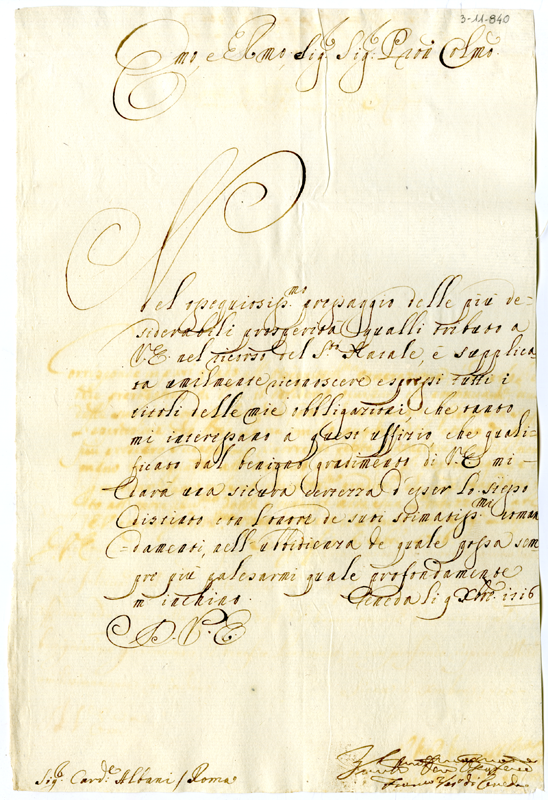 3-11-840
Emo, e Rmo Sig.r Sig.r Pron Colmo
Nel ossequiosiss.mo presaggio delle più de=
siderabili prosperità quali tributo a
V.E. nel ricorso del S.to Natale, è supplica
ta umilmente riconoscere espressi tutti i
titoli delle mie obbligazioni, che tanto
mi interessano à quest'uffizio che quali=
ficato dal benigno gradimento di V.E. mi
darà una sicura certezza d'esser lo stesso
con l'onore de suoi stimatiss.mi coman
=damenti, nell'ubbidienza de quale possa sem
pre più palesarmi quale profondamente
m'inchino.
Ceneda li 9 Xbre. 1716
D. V. E.
Sig.r Card.e Albani / Roma
di Ceneda